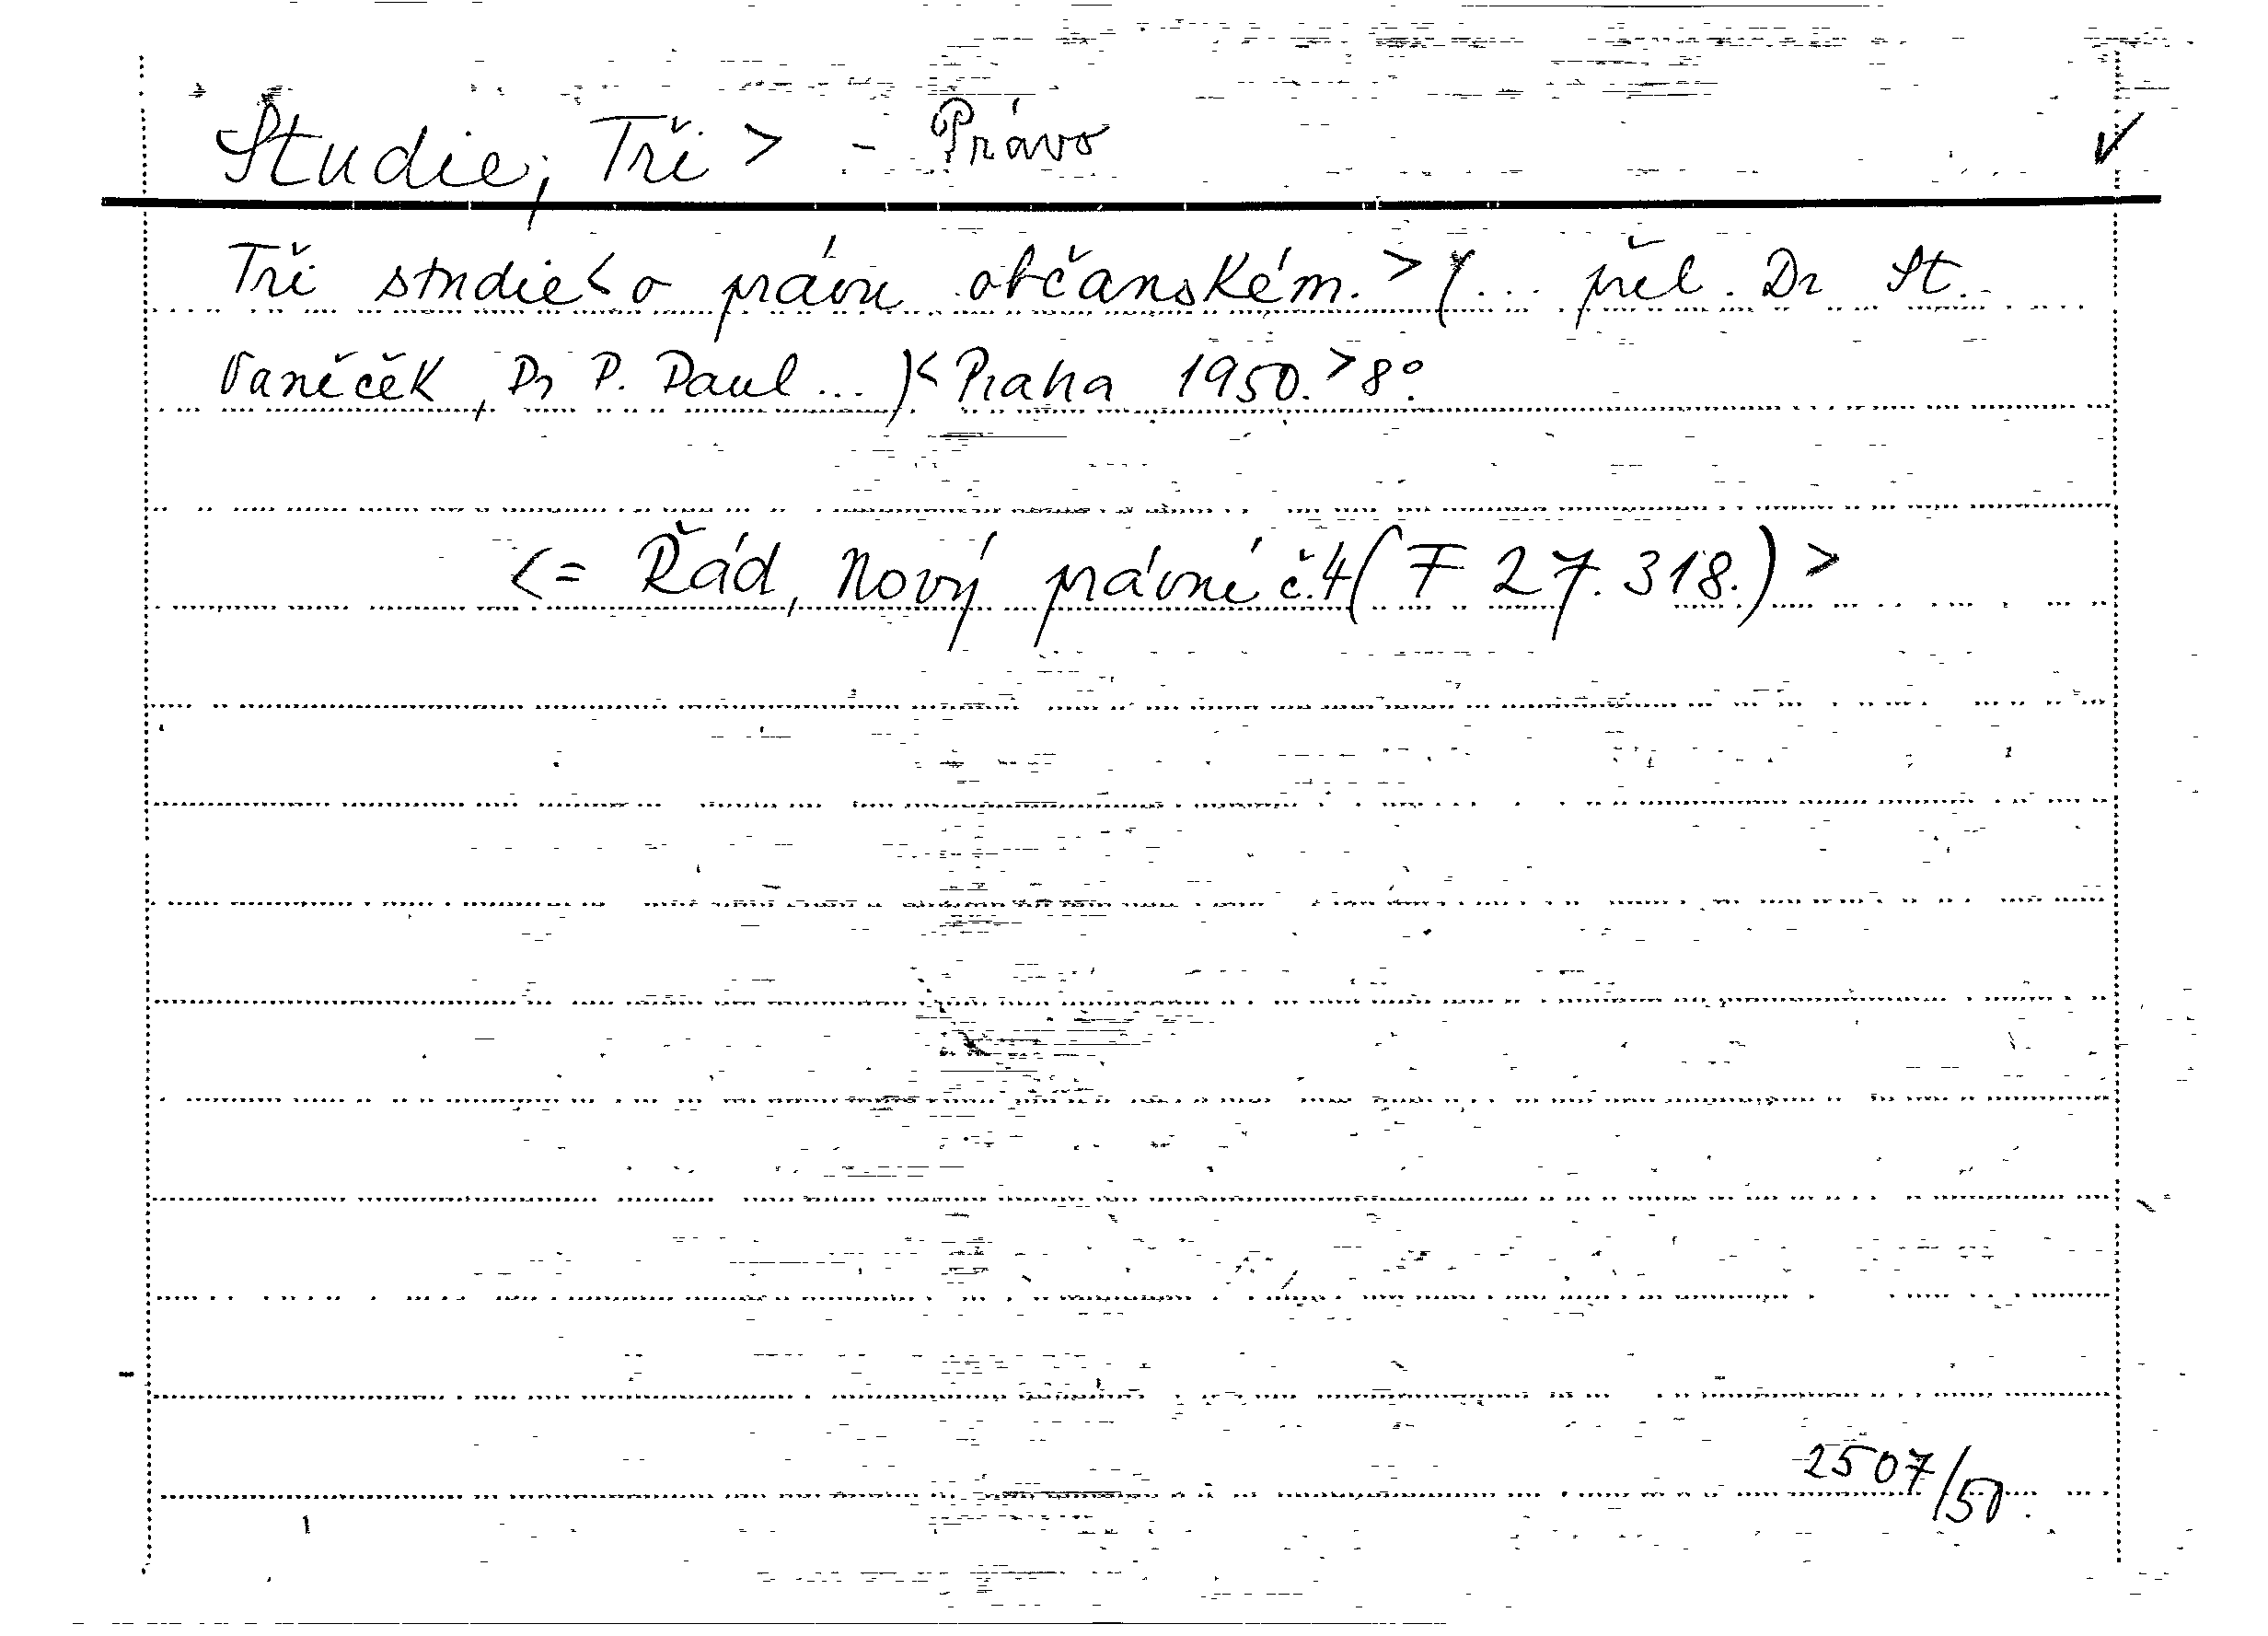 Studie, Tři > - Právo
Tři studie < o právu občanském. > (... přel. Dr St.
Vaněček, Dr P. Paul ... ) < Praha 1950. > 8°.
< = Řád, Nový právní č. 4 ( F 27.318.) >
2507/50.